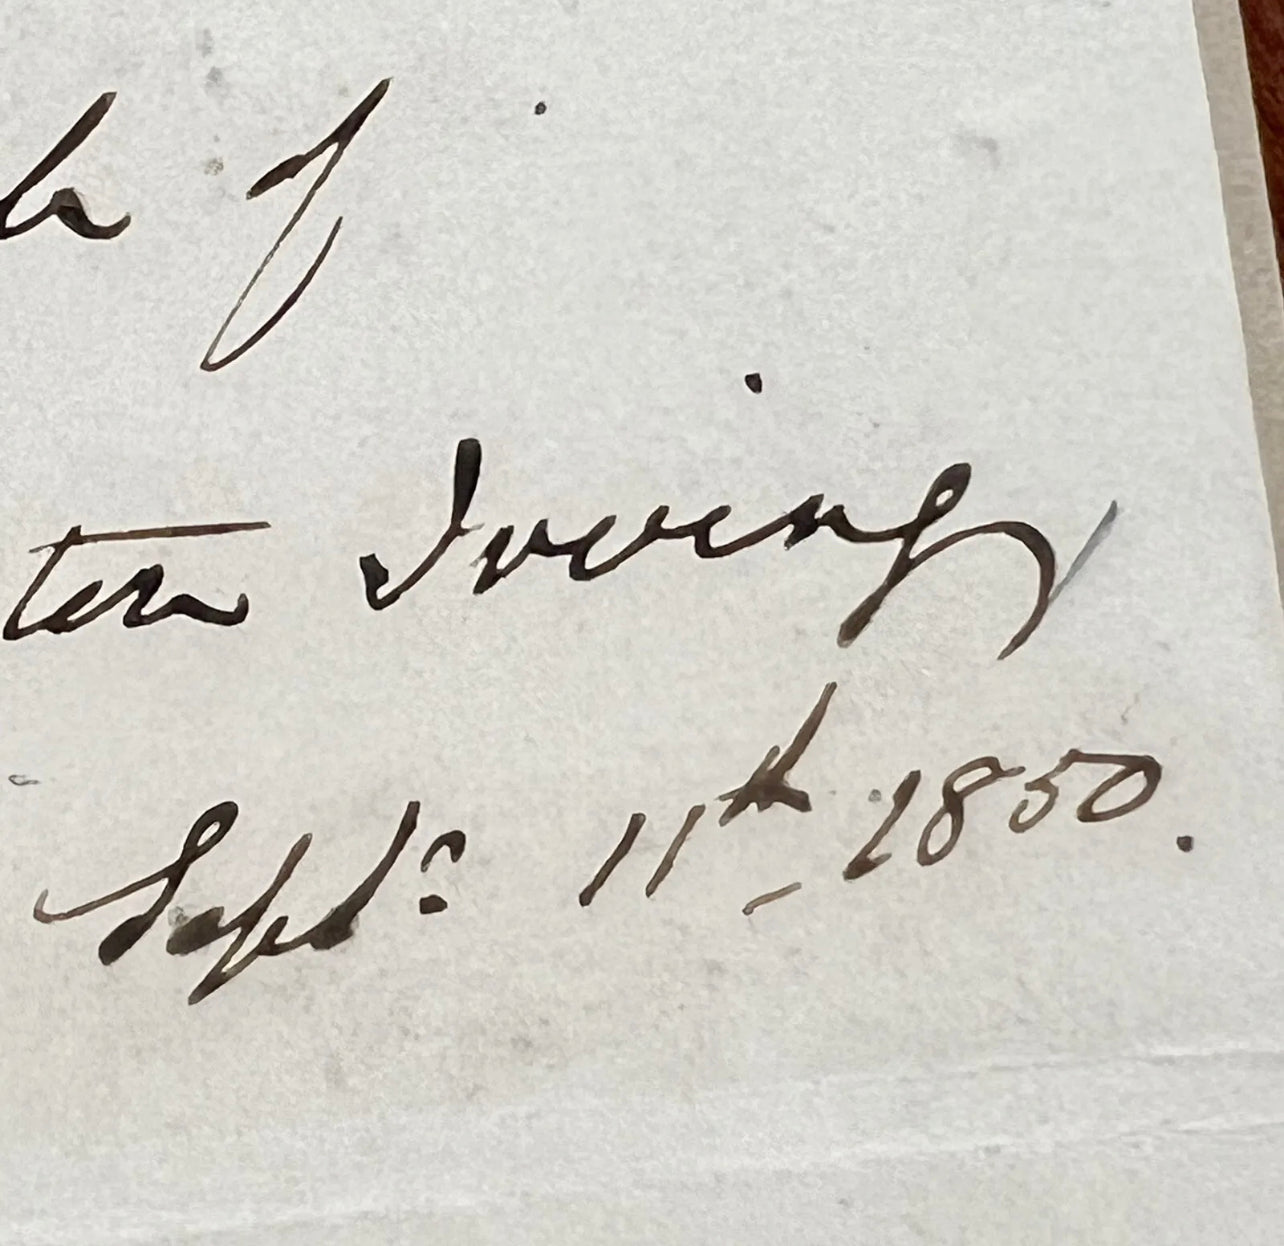 of
ton Irving
Septr. 11th 1850.